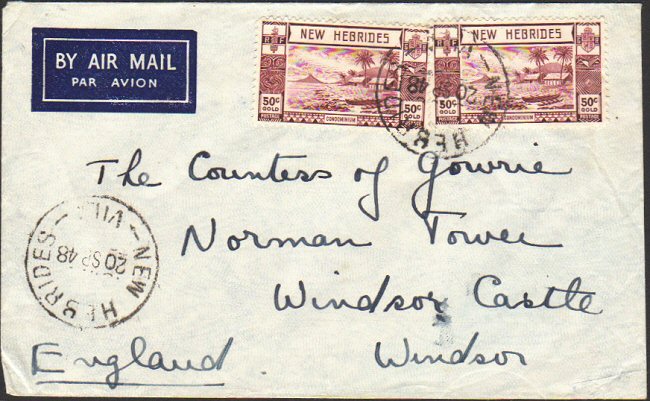 BY AIR MAIL
PAR AVION
NEW HEBRIDES
RF
50c
GOLD
POSTAGE
CONDOMINIUM
50c
GOLD
POSTAGE
NEW HEBRIDES
RF
50c
GOLD
POSTAGE
CONDOMINIUM
50c
GOLD
POSTAGE
VILA
20 SP 48
NEW HEBRIDES
The Countess of Gowrie
Norman Tower
Windsor Castle
Windsor
England
VILA
20 SP 48
NEW HEBRIDES